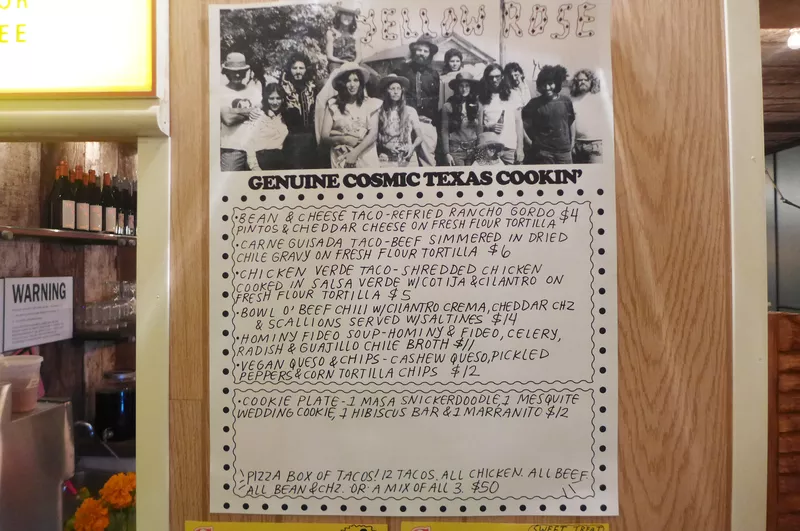 EE
YELLOW ROSE
GENUINE COSMIC TEXAS COOKIN'
•BEAN & CHEESE TACO-REFRIED RANCHO GORDO $4
PINTOS & CHEDDAR CHEESE ON FRESH FLOUR TORTILLA
•CARNE GUISADA TACO-BEEF SIMMERED IN DRIED
CHILE GRAVY ON FRESH FLOUR TORTILLA $6
•CHICKEN VERDE TACO-SHREDDED CHICKEN
COOKED IN SALSA VERDE W/COTIJA & CILANTRO ON
FRESH FLOUR TORTILLA $5
•BOWL O' BEEF CHILI W/CILANTRO CREMA, CHEDDAR CHZ
& SCALLIONS SERVED W/SALTINES $14
•HOMINY FIDEO SOUP-HOMINY & FIDEO, CELERY,
RADISH & GUAJILLO CHILE BROTH $11
•VEGAN QUESO & CHIPS-CASHEW QUESO, PICKLED
PEPPERS & CORN TORTILLA CHIPS $12
•COOKIE PLATE-1 MASA SNICKERDOODLE, 1 MESQUITE
WEDDING COOKIE, 1 HIBISCUS BAR & 1 MARRANITO $12
PIZZA BOX OF TACOS! 12 TACOS. ALL CHICKEN. ALL BEEF.
ALL BEAN & CHZ. OR A MIX OF ALL 3. $50
WARNING
SWEET TREAT